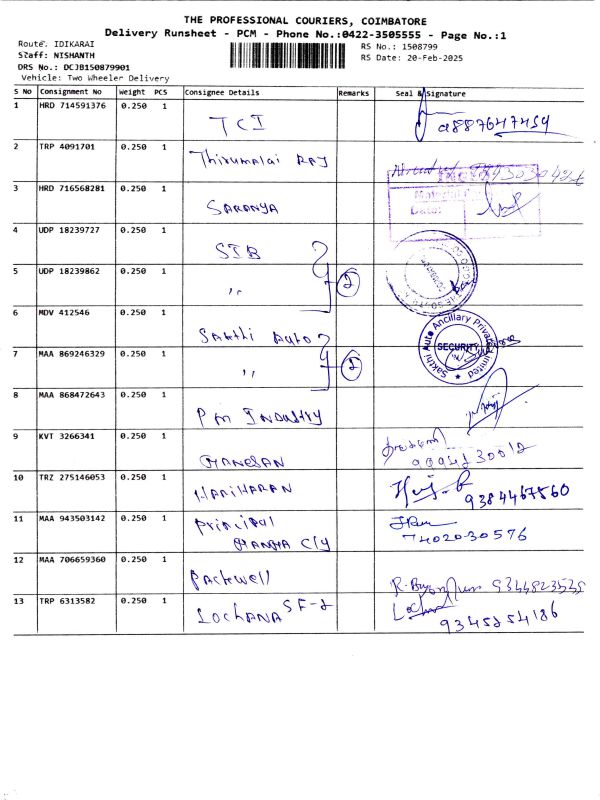 THE PROFESSIONAL COURIERS, COIMBATORE
Delivery Runsheet - PCM - Phone No.:0422-3505555 - Page No.:1
Route. IDIKARAI
RS No.: 1508799
Staff: NISHANTH
RS Date: 20-Feb-2025
DRS No.: DCJB150879901
Vehicle: Two Wheeler Delivery
S No Consignment No Weight PCS Consignee Details Remarks Seal & Signature
1 HRD 714591376 0.250 1 TCI
2 TRP 4091701 0.250 1 Thirumalai RAJ
3 HRD 716568281 0.250 1 SARANYA
4 UDP 18239727 0.250 1 SIB
5 UDP 18239862 0.250 1 ,, 2
6 MDV 412546 0.250 1 Sakthi Auto
7 MAA 869246329 0.250 1 ,, 2
Sakthi Auto Ancillary Private Limited
SECURITY
8 MAA 868472643 0.250 1 PM INDUSTRY
9 KVT 3266341 0.250 1 GANESAN
10 TRZ 275146053 0.250 1 HARIHARAN 9384467560
11 MAA 943503142 0.250 1 Principal
7402030576
12 MAA 706659360 0.250 1 Packwell
13 TRP 6313582 0.250 1 LOCHANA SF-2
9345254186